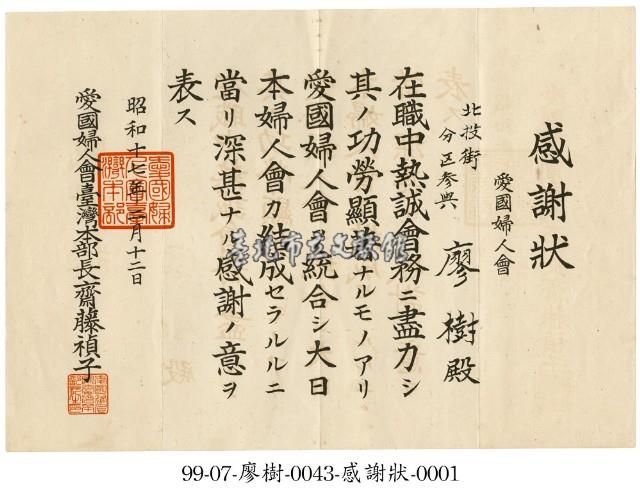 感謝狀
愛國婦人會
北投街
分区參與
廖樹殿
在職中熱誠會務ニ盡力シ
其ノ功勞顯著ナルモノアリ
愛國婦人會ヲ統合シ大日
本婦人會カ結成セラルルニ
當リ深甚ナル感謝ノ意ヲ
表ス
昭和十七年二月十二日
愛國婦人會臺灣本部長齋藤禎子
臺北市立文獻館
99-07-廖樹-0043-感謝狀-0001